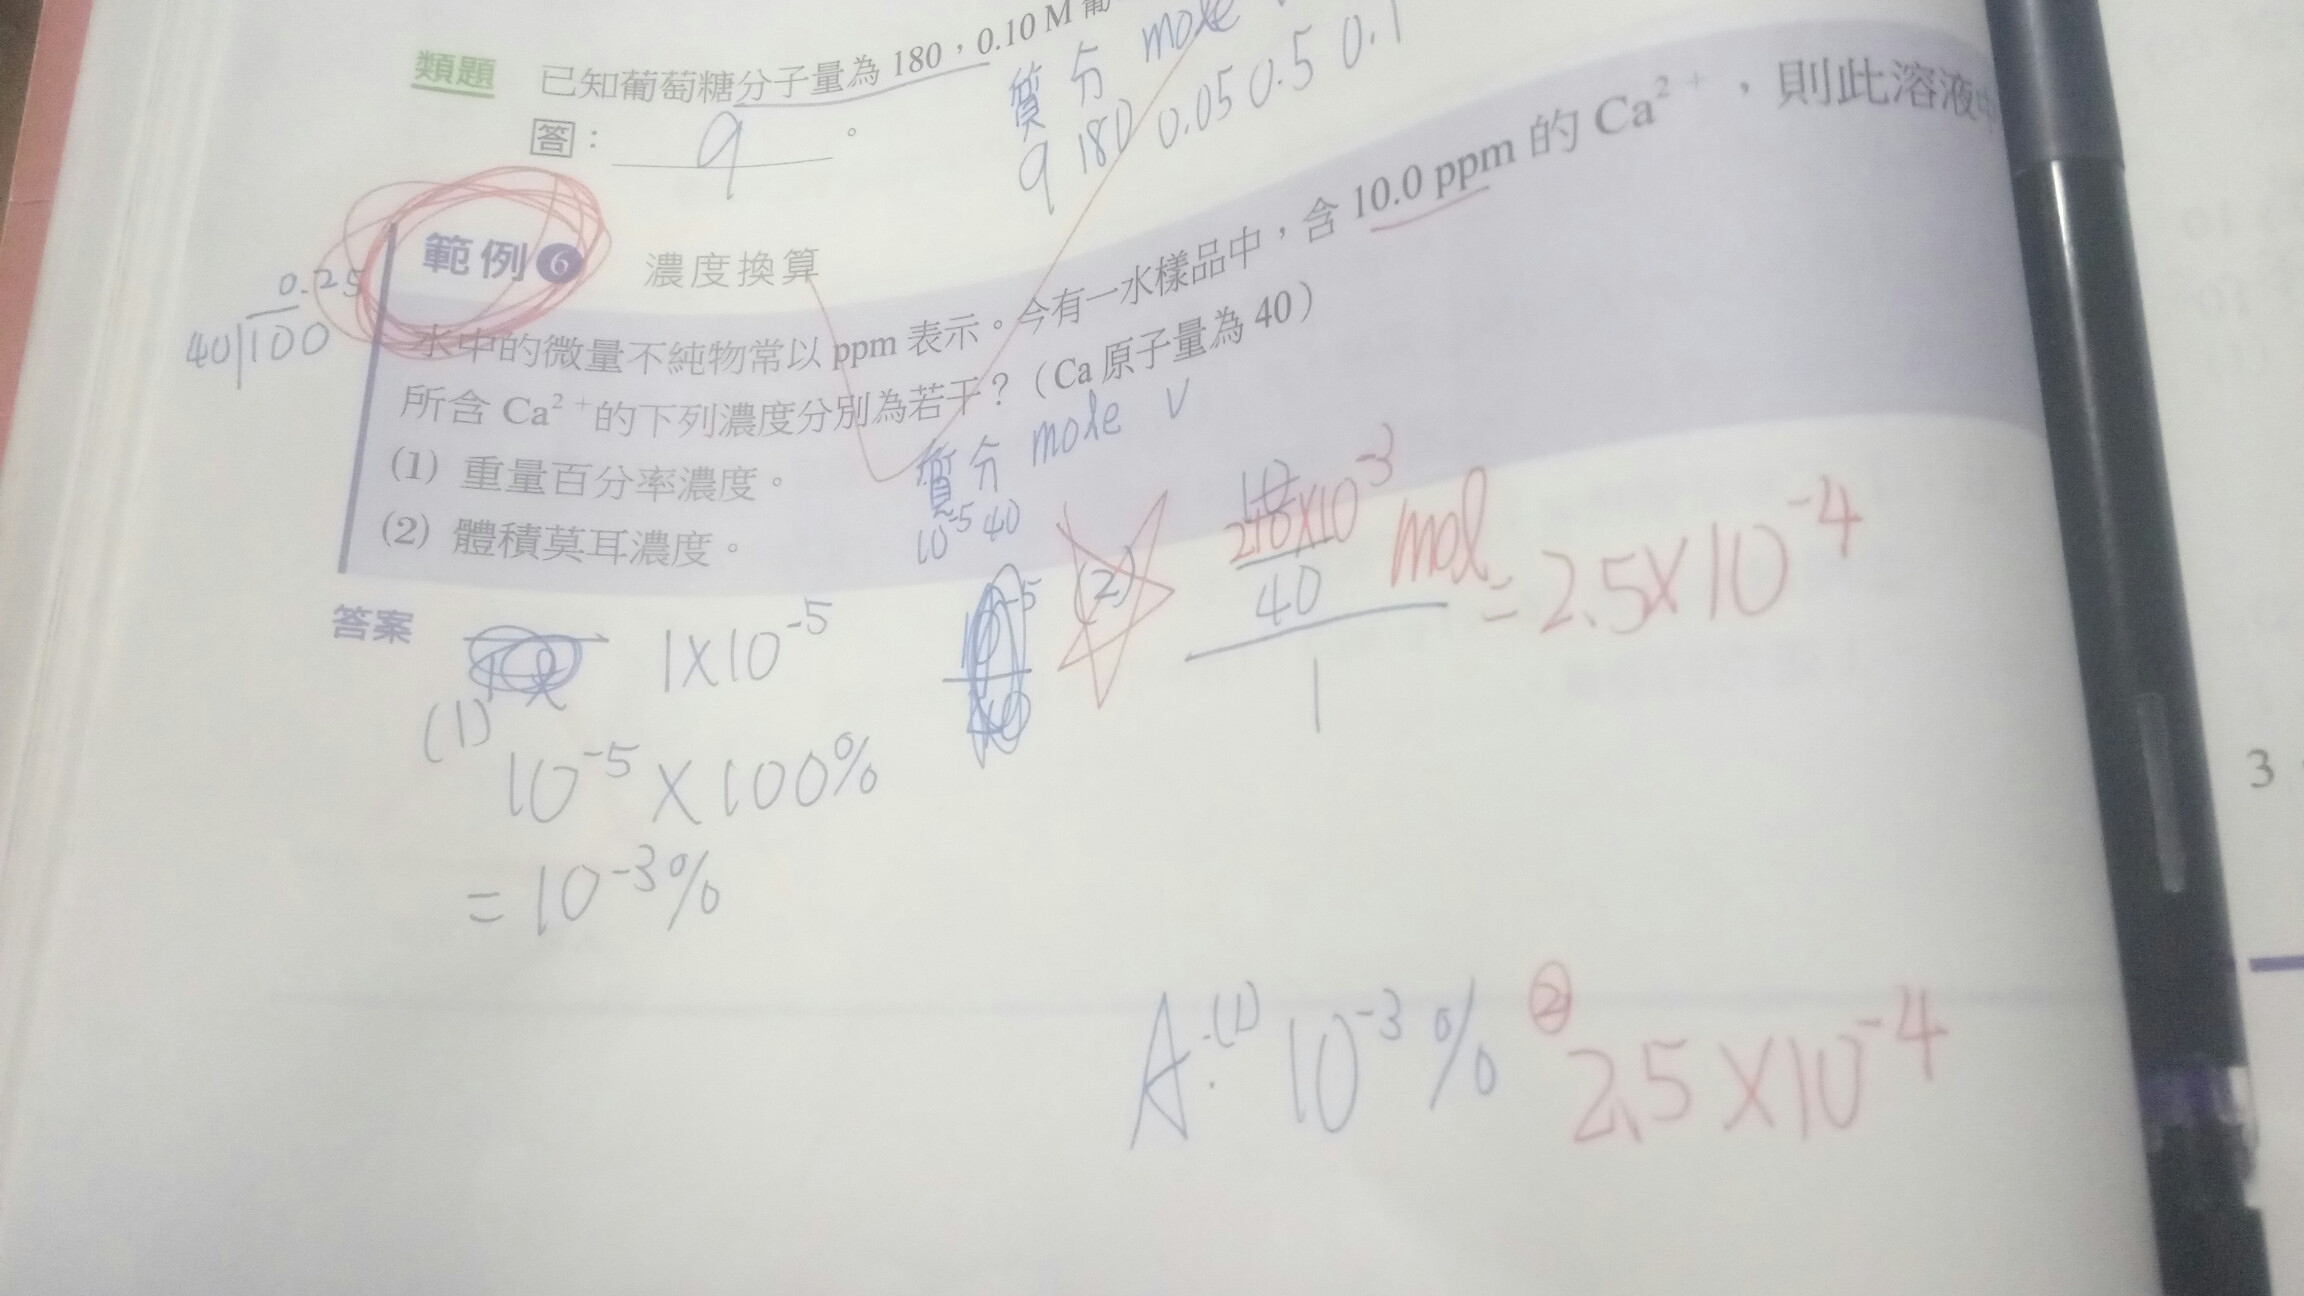 類題 已知葡萄糖分子量為 180，0.10 M
質 分 mole
9 180 0.05 0.5 0.1
答：9。
範例 6 濃度換算
0.25
40 100
水中的微量不純物常以 ppm 表示。今有一水樣品中，含 10.0 ppm 的 Ca²⁺，則此溶液中
所含 Ca²⁺的下列濃度分別為若干？（Ca 原子量為 40）
質 分 mole V
10⁻⁵ 40
(1) 重量百分率濃度。
(2) 體積莫耳濃度。
答案
1×10⁻⁵
(1) 10⁻⁵×100%
=10⁻³%
(2)
10×10⁻³ mol
40
1
=2.5×10⁻⁴
A:(1) 10⁻³% ② 2.5×10⁻⁴
3